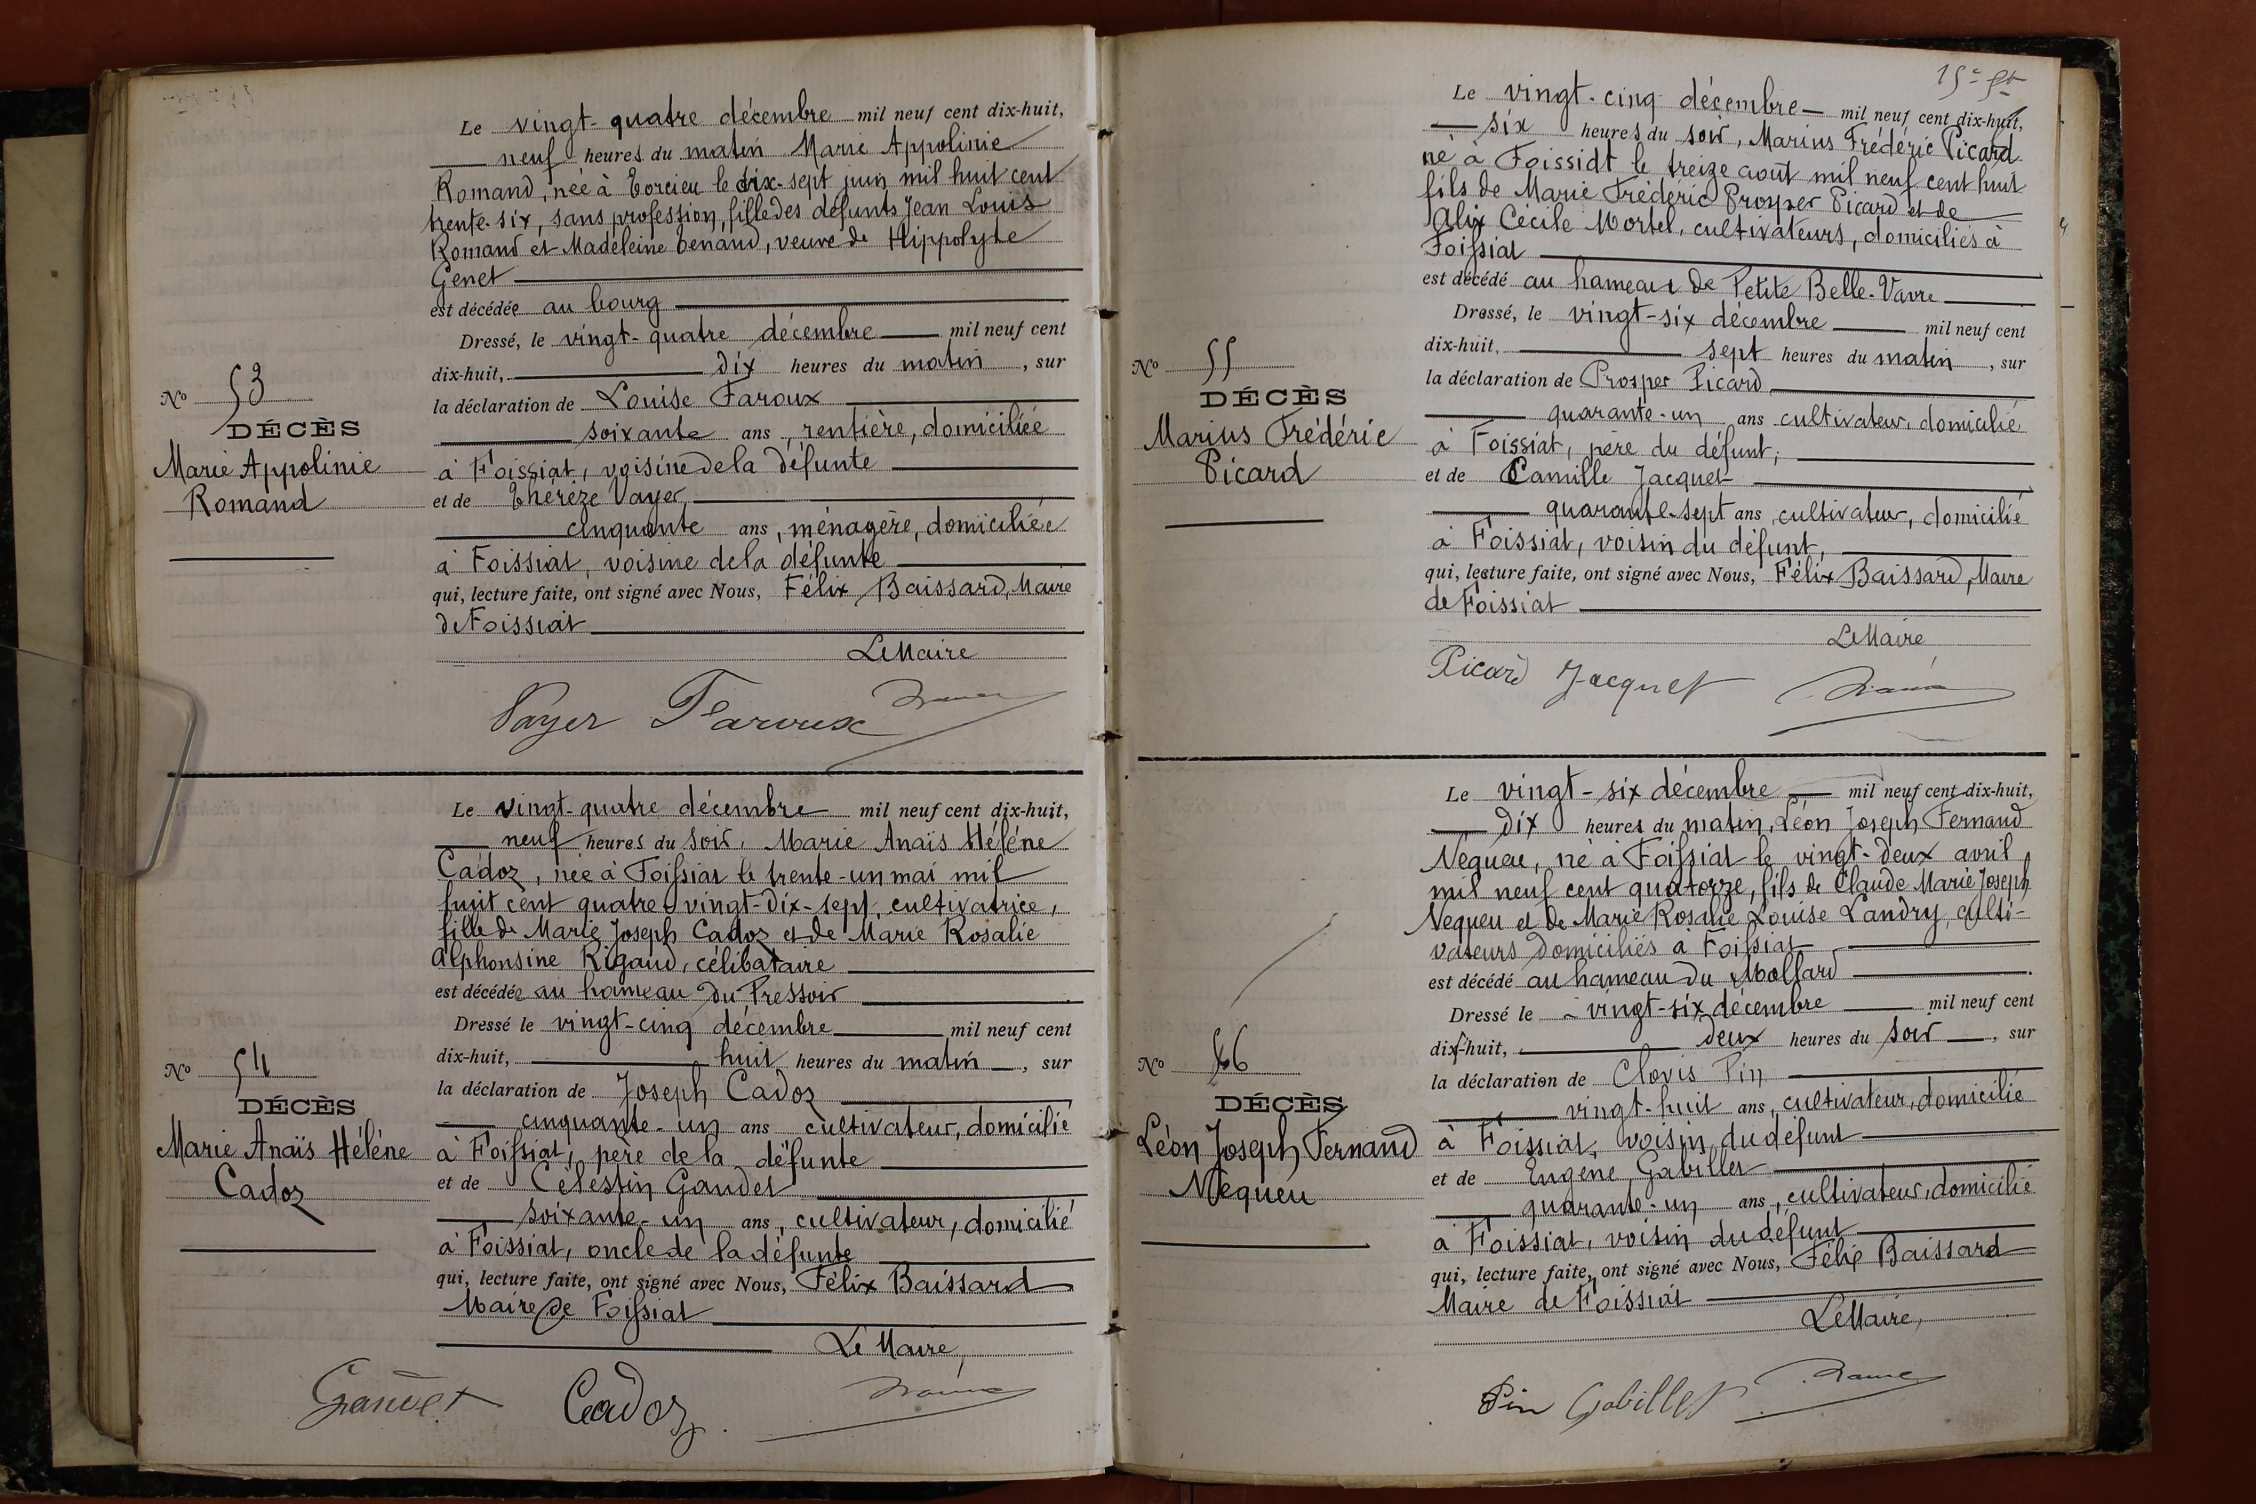 Le vingt-quatre décembre mil neuf cent dix-huit,
neuf heures du matin Marie Appolinie
Romand, née à Torcieu le dix-sept juin mil huit cent
trente-six, sans profession, fille des défunts Jean Louis
Romand et Madeleine Tenand, veuve de Hippolyte
Genet
est décédée au bourg
Dressé, le vingt-quatre décembre mil neuf cent
dix-huit, dix heures du matin, sur
la déclaration de Louise Faroux
soixante ans, rentière, domiciliée
à Foissiat, voisine de la défunte
et de Thérèze Vayer
cinquante ans, ménagère, domiciliée
à Foissiat, voisine de la défunte
qui, lecture faite, ont signé avec Nous, Félix Baissard, Maire
de Foissiat
Le Maire
Vayer Faroux
No 53
DÉCÈS
Marie Appolinie
Romand
Le vingt-quatre décembre mil neuf cent dix-huit,
neuf heures du soir, Marie Anaïs Hélène
Cadoz, née à Foissiat le trente-un mai mil
huit cent quatre-vingt-dix-sept, cultivatrice,
fille de Marie Joseph Cadoz et de Marie Rosalie
Alphonsine Rigaud, célibataire
est décédée au hameau du Pressoir
Dressé le vingt-cinq décembre mil neuf cent
dix-huit, huit heures du matin, sur
la déclaration de Joseph Cadoz
cinquante-un ans cultivateur, domicilié
à Foissiat, père de la défunte
et de Célestin Gaudet
soixante-un ans, cultivateur, domicilié
à Foissiat, oncle de la défunte
qui, lecture faite, ont signé avec Nous, Félix Baissard
Maire de Foissiat
Le Maire,
Gaudet Cadoz
No 54
DÉCÈS
Marie Anaïs Hélène
Cadoz
Le vingt-cinq décembre mil neuf cent dix-huit,
six heures du soir, Marius Frédéric Picard
né à Foissiat le treize août mil neuf cent huit
fils de Marie Fréderic Prosper Picard et de
Alix Cecile Mortel, cultivateurs, domiciliés à
Foissiat
est décédé au hameau de Petite Belle-Vavre
Dressé, le vingt-six décembre mil neuf cent
dix-huit, sept heures du matin, sur
la déclaration de Prosper Picard
quarante-un ans cultivateur, domicilié
à Foissiat, père du défunt,
et de Camille Jacquet
quarante-sept ans, cultivateur, domicilié
à Foissiat, voisin du défunt,
qui, lecture faite, ont signé avec Nous, Félix Baissard, Maire
de Foissiat
Le Maire
Picard Jacquet
No 55
DÉCÈS
Marius Frédéric
Picard
Le vingt-six décembre mil neuf cent dix-huit,
dix heures du matin, Léon Joseph Fernand
Nequeu, né à Foissiat le vingt-deux avril
mil neuf cent quatorze, fils de Claude Marie Joseph
Nequeu et de Marie Rosalie Louise Landry, culti-
vateurs domiciliés à Foissiat
est décédé au hameau du Mollard
Dressé le vingt-six décembre mil neuf cent
dix-huit, deux heures du soir, sur
la déclaration de Clovis Pin
vingt-huit ans, cultivateur, domicilié
à Foissiat, voisin du défunt
et de Eugène Gabillet
quarante-un ans, cultivateur, domicilié
à Foissiat, voisin du défunt
qui, lecture faite, ont signé avec Nous, Félix Baissard
Maire de Foissiat
Le Maire,
Pin Gabillet
No 56
DÉCÈS
Léon Joseph Fernand
Nequeu